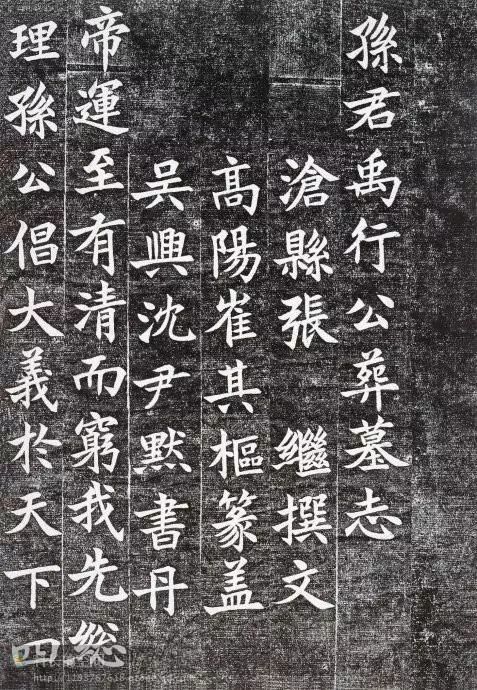 孫君禹行公葬墓志
滄縣張 繼撰文
高陽崔其樞篆盖
吳興沈尹默書丹
帝運至有清而窮我先總
理孫公倡大義於天下四